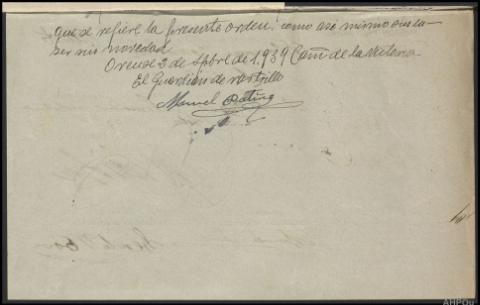 que se refiere la presente orden, como asi mismo su
ser sin novedad
Orense 3 de Spbre de 1.939 Año de la Victoria
El Guardian de rastrillo
Manuel Patiño
AHPOu